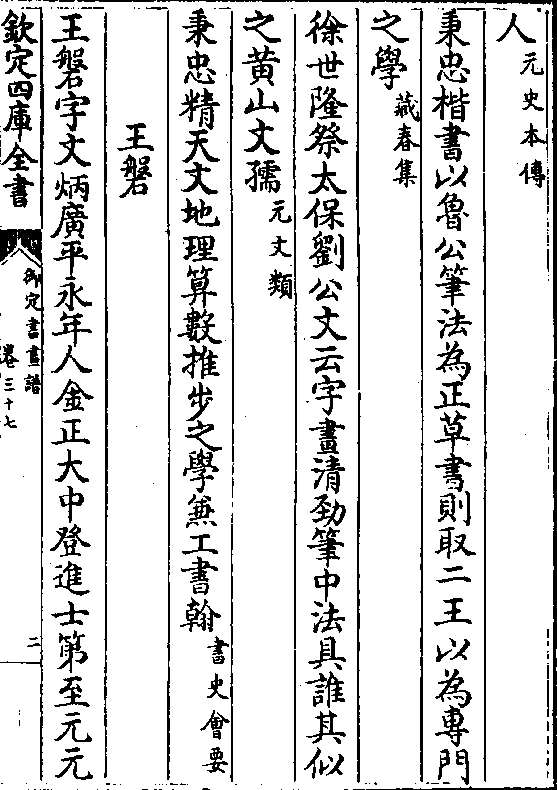 人元史本傳
秉忠楷書以魯公筆法為正草書則取二王以為專門
之學藏春集
徐世隆祭太保劉公文云字畫清勁筆中法具誰其似
之黄山文孺元文類
秉忠精天文地理算數推步之學兼工書翰書史會要
王磐
王磐字文炳廣平永年人金正大中登進士第至元元
欽定四庫全書
御定書畫譜
卷三十七
二